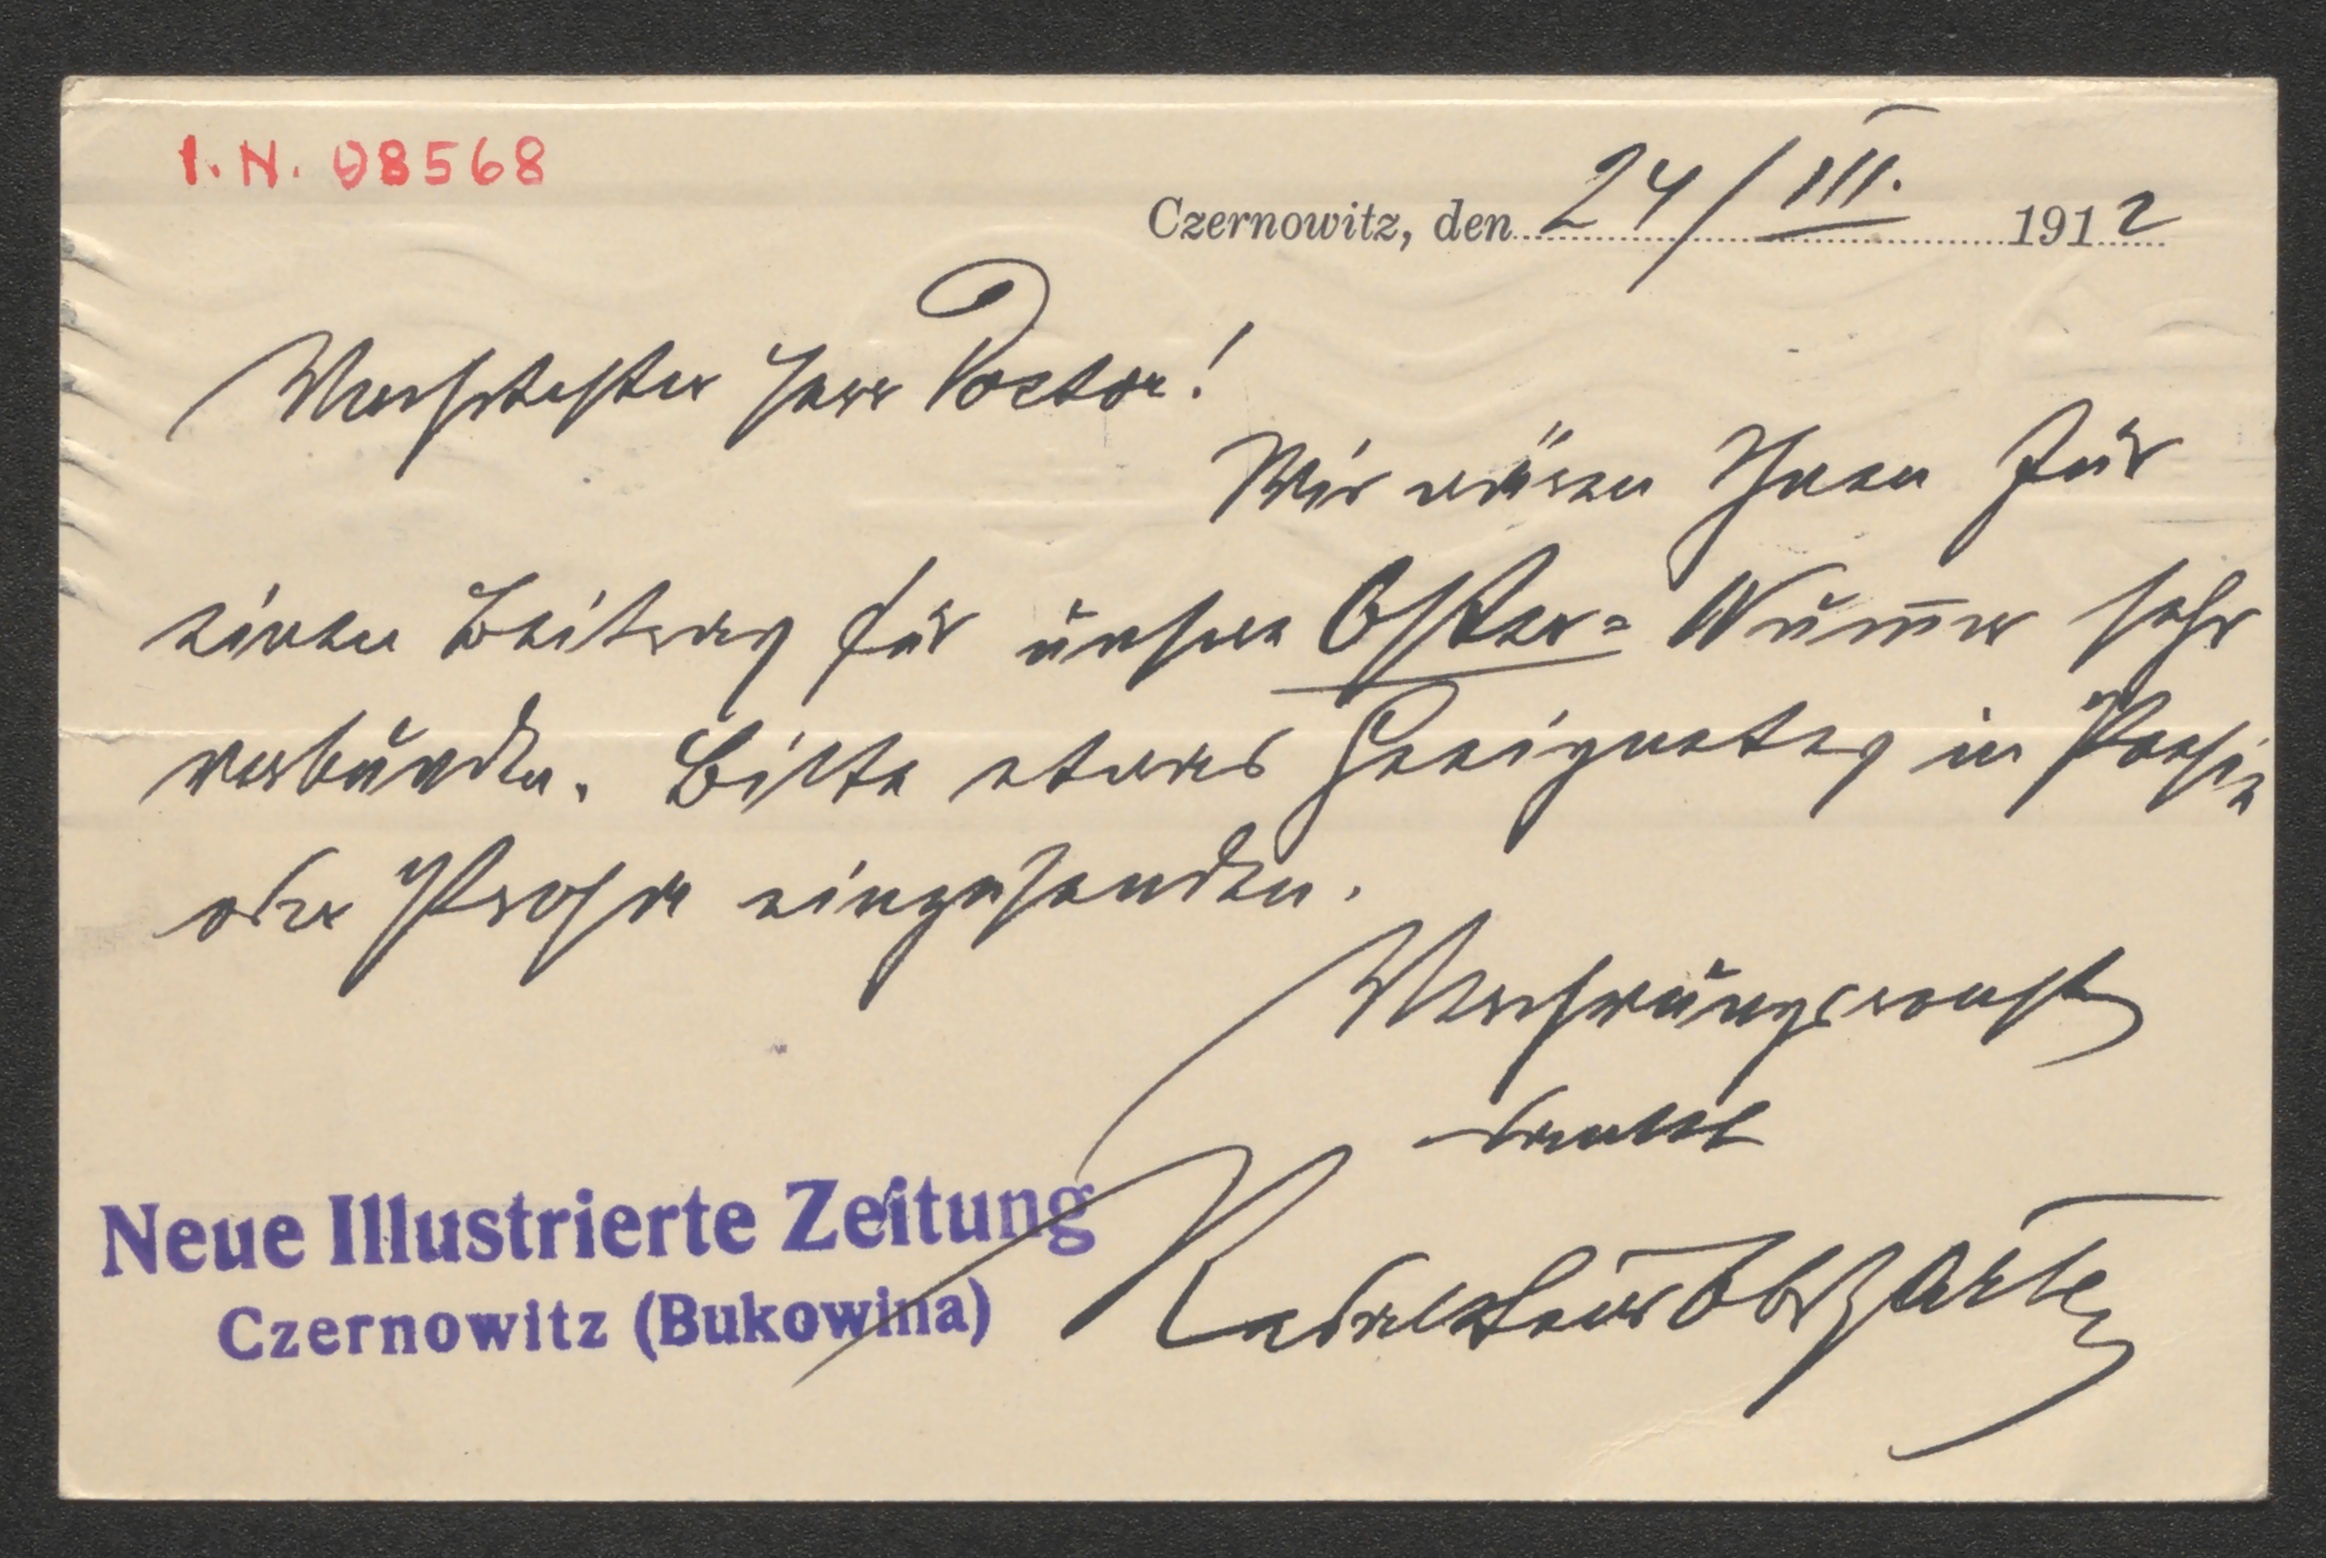 I.N. 98568
Czernowitz, den 24/III. 1912
Verehrtester Herr Doctor!
Wir wären Ihnen für
einen Beitrag für unsere Oster= Num̅er sehr
verbunden. Bitte etwas Geeignetes in Poesie
oder Prosa einzusenden.
Verehrungsvollst
Neue Illustrierte Zeitung
Czernowitz (Bukowina)